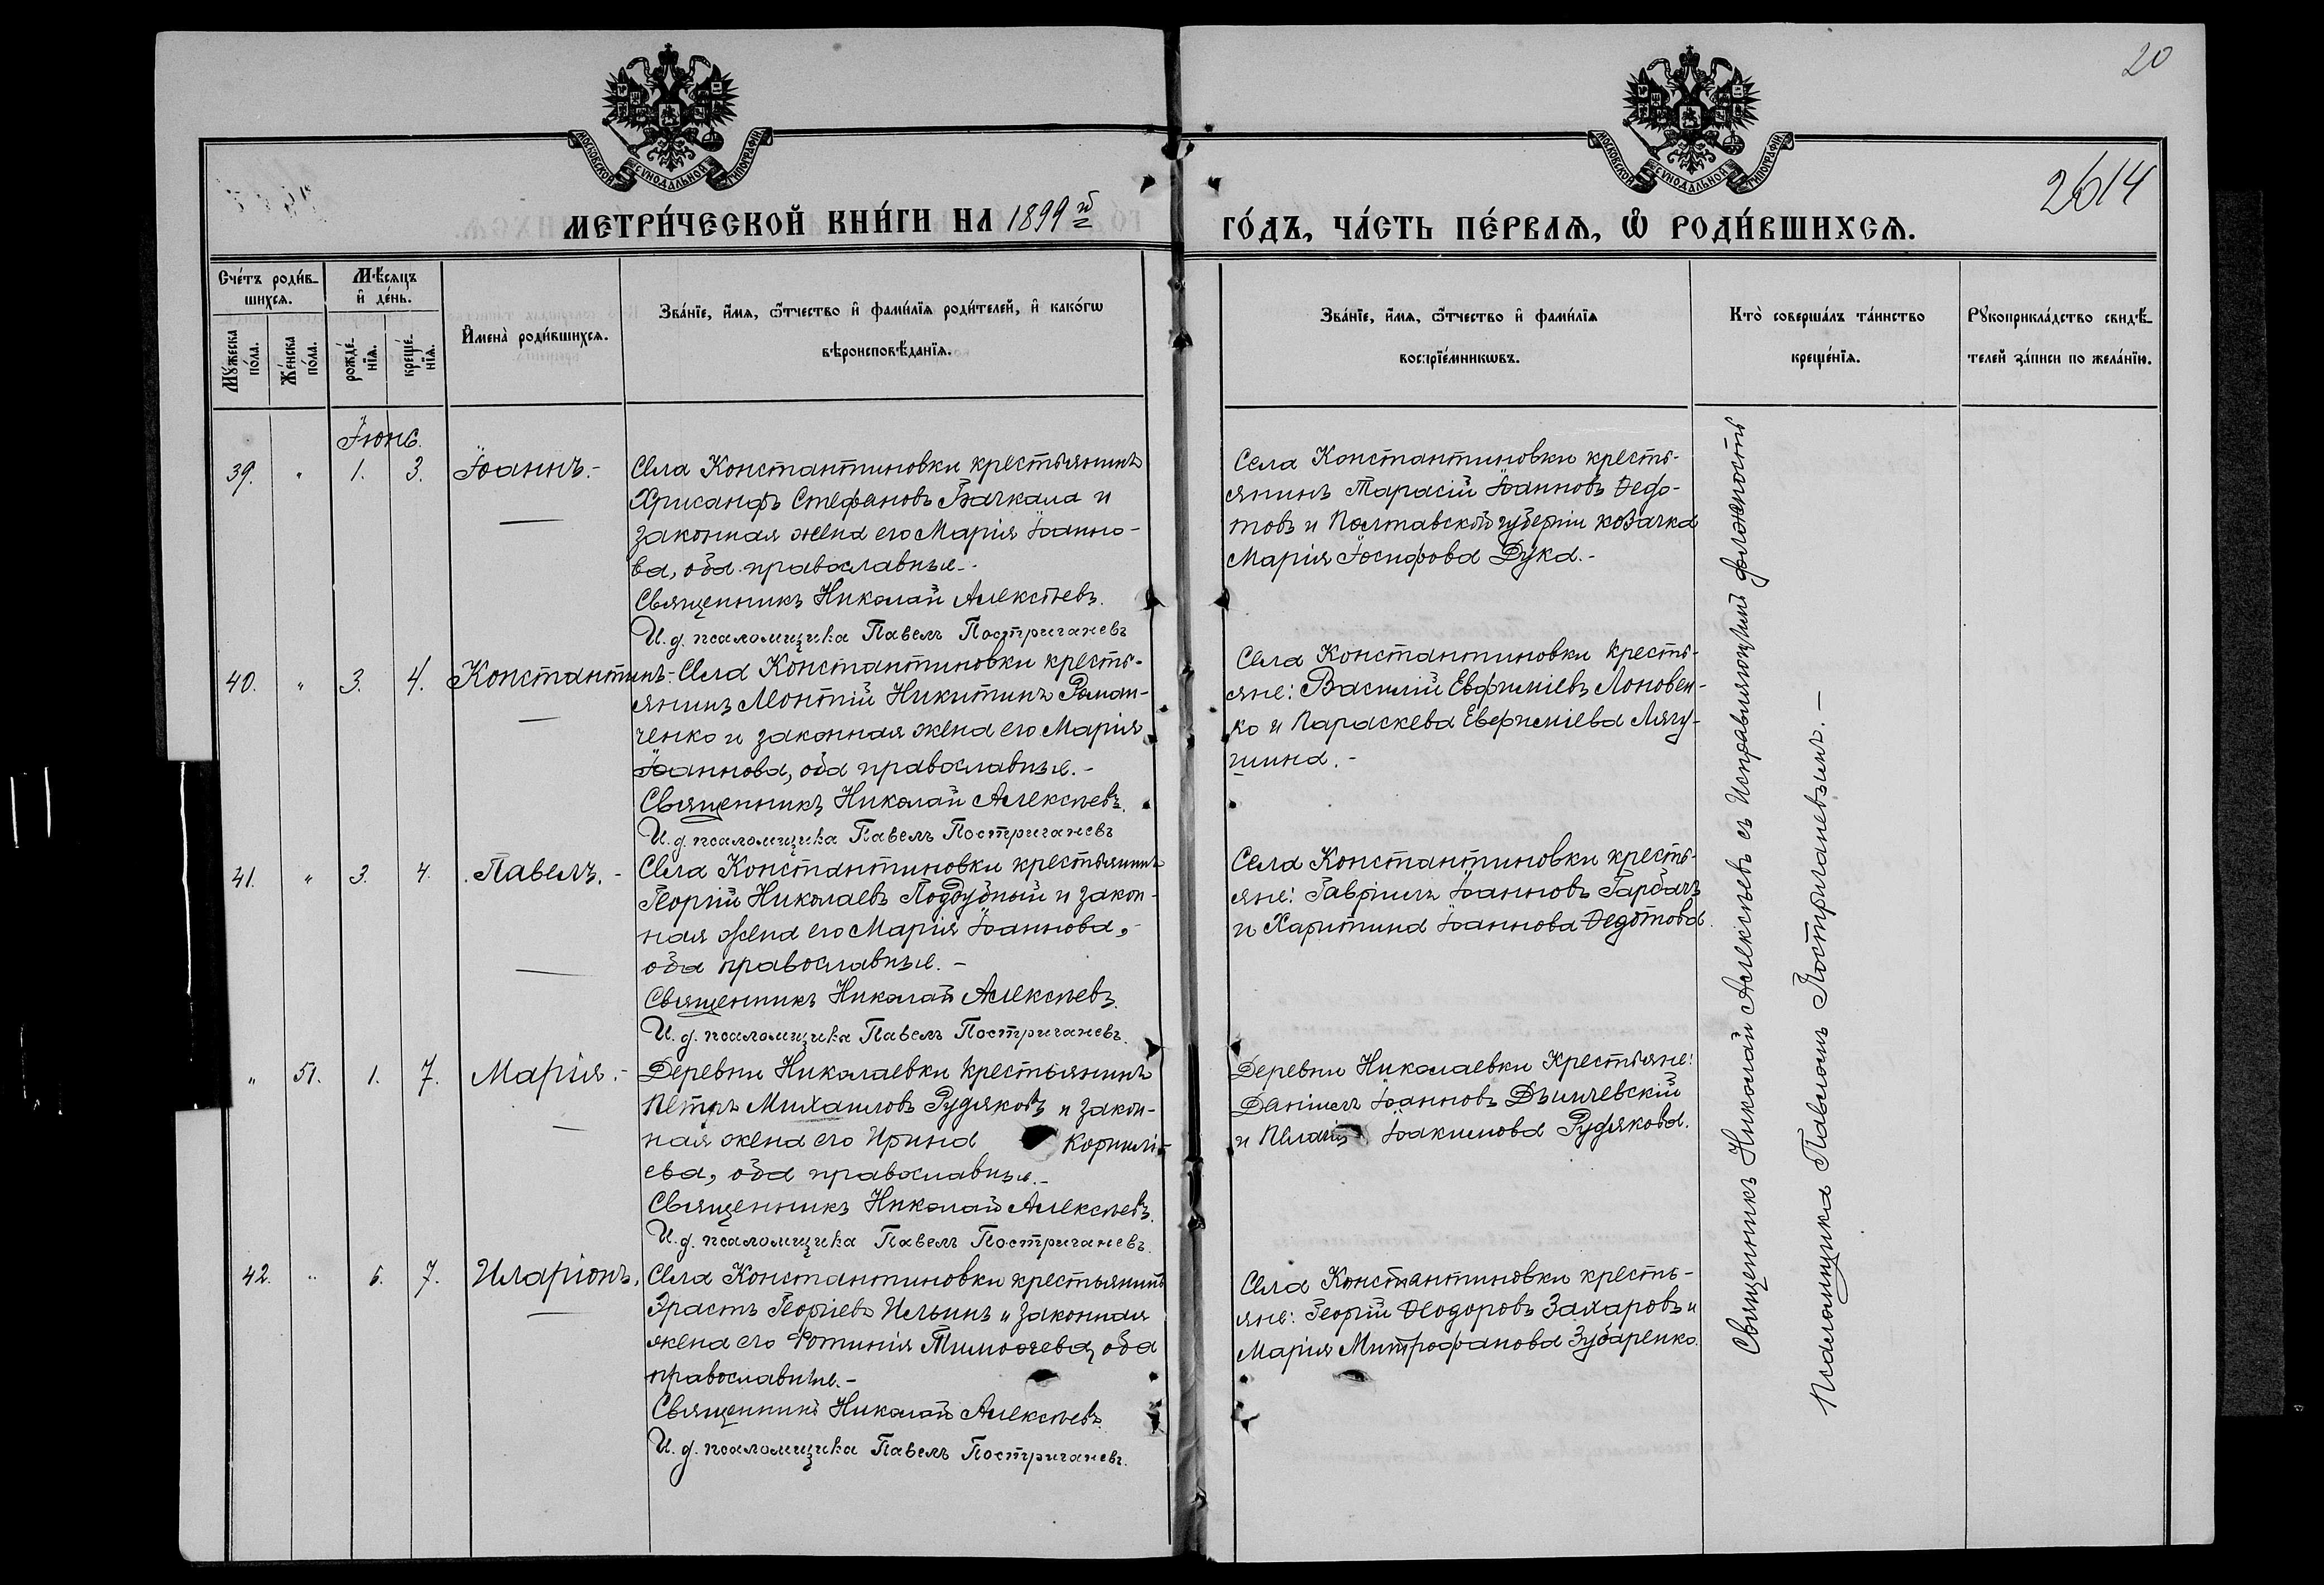 20
2614
МОСКОВСКОЙ СѴНОДАЛЬНОЙ ТИПОГРАФІИ
МОСКОВСКОЙ СѴНОДАЛЬНОЙ ТИПОГРАФІИ
МЕТРИ́ЧЕСКОЙ КНИ́ГИ НА 1899 й
ГО́ДЪ, ЧА́СТЬ ПЕ́РВАѦ, Ѡ҆ РОДИ́ВШИХСѦ.
Сче́тъ роди́в-
шихсѧ.
Мꙋ́жеска по́ла.
Же́нска по́ла.
Мѣ́сѧцъ
и҆ де́нь.
рожде́-нїѧ.
креще́-нїѧ.
И҆мена̀ роди́вшихсѧ.
Зва́нїе, и҆́мѧ, ѻ҆́тчество и҆ фами́лїѧ роди́телей, и҆ како́гѡ
вѣроисповѣ́данїѧ.
Зва́нїе, и҆́мѧ, ѻ҆́тчество и҆ фами́лїѧ
воспрїе́мникѡвъ.
Кто̀ соверша́лъ та́инство
креще́нїѧ.
Рꙋкоприкла́дство свидѣ́-
телей за́писи по жела́нїю.
Іюнь.
39. " 1. 3. Іоаннъ.-
Села Константиновки крестьянинъ
Хрисанфъ Стефановъ Бачкала и
законная жена его Марія Іоанно-
ва, оба православные.-
Священникъ Николай Алексѣевъ.
И. д. псаломщика Павелъ Постригачевъ
Села Константиновки кресть-
янинъ Тарасій Іоанновъ Ѳедо-
товъ и Полтавской губерніи козачка
Марія Іосифова Дука.-
40. " 3. 4. Константинъ.-
Села Константиновки кресть-
янинъ Леонтій Никитинъ Роман-
ченко и законная жена его Марія
Іоаннова, оба православные.-
Священникъ Николай Алексѣевъ.
И. д. псаломщика Павелъ Постригачевъ
Села Константиновки кресть-
яне: Василій Евфиміевъ Лоновен-
ко и Параскева Евфиміева Лягу-
шина.-
41. " 3. 4. Павелъ.-
Села Константиновки крестьянинъ
Георгій Николаевъ Поддубный и закон-
ная жена его Марія Іоаннова,-
оба православные.-
Священникъ Николай Алексѣевъ.
И. д. псаломщика Павелъ Постригачевъ.
Села Константиновки кресть-
яне: Гавріилъ Іоанновъ Гарбачъ
и Харитина Іоаннова Ѳедотова.
" 51. 1. 7. Марія.-
Деревни Николаевки крестьянинъ
Петръ Михаиловъ Рудяковъ и закон-
ная жена его Ирина Корнилі-
ева, оба православные.-
Священникъ Николай Алексѣевъ.
И. д. псаломщика Павелъ Постригачевъ.
Деревни Николаевки Крестьяне:
Даніилъ Іоанновъ
и Пелагія Іоакимова Рудякова.
42. " 6. 7. Иларіонъ.
Села Константиновки крестьянинъ
Эрастъ Георгіевъ Ильинъ и законная
жена его Фотинія Тимоѳеева, оба
православные.-
Священникъ Николай Алексѣевъ.
И. д. псаломщика Павелъ Постригачевъ.
Села Константиновки кресть-
яне: Георгій Ѳеодоровъ Захаровъ и
Марія Митрофанова Зубаренко.
Священникъ Николай Алексѣевъ съ Исправляющимъ должность
Псаломщика Павломъ Постригачевымъ.-